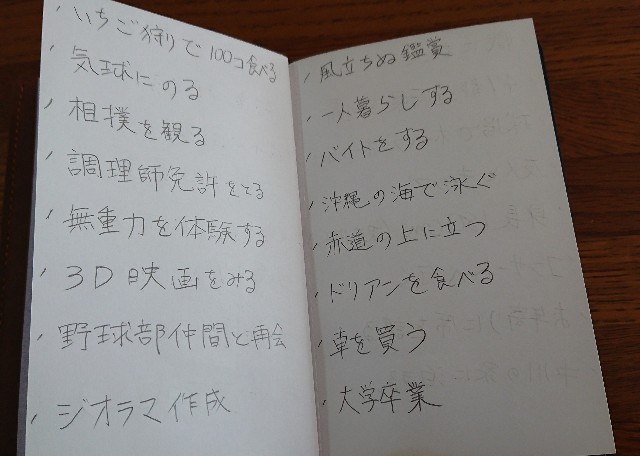 いちご狩りで100コ食べる
気球にのる
相撲を観る
調理師免許をとる
無重力を体験する
3D映画をみる
野球部仲間と再会
ジオラマ作成
風立ちぬ鑑賞
一人暮らしする
バイトをする
沖縄の海で泳ぐ
赤道の上に立つ
ドリアンを食べる
車を買う
大学卒業